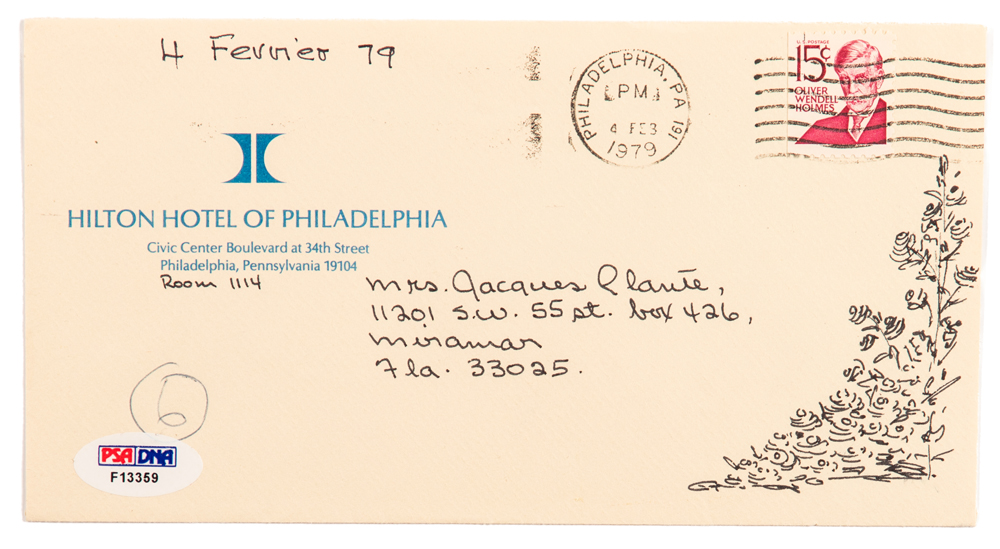 4 Fevrier 79
PHILADELPHIA, PA 191
PM
4 FEB
1979
U.S. POSTAGE
15¢
OLIVER
WENDELL
HOLMES
HILTON HOTEL OF PHILADELPHIA
Civic Center Boulevard at 34th Street
Philadelphia, Pennsylvania 19104
Room 1114
Mrs. Jacques Plante,
11201 S.W. 55 st. box 426,
Miramar
Fla. 33025.
6
PSA DNA
F13359